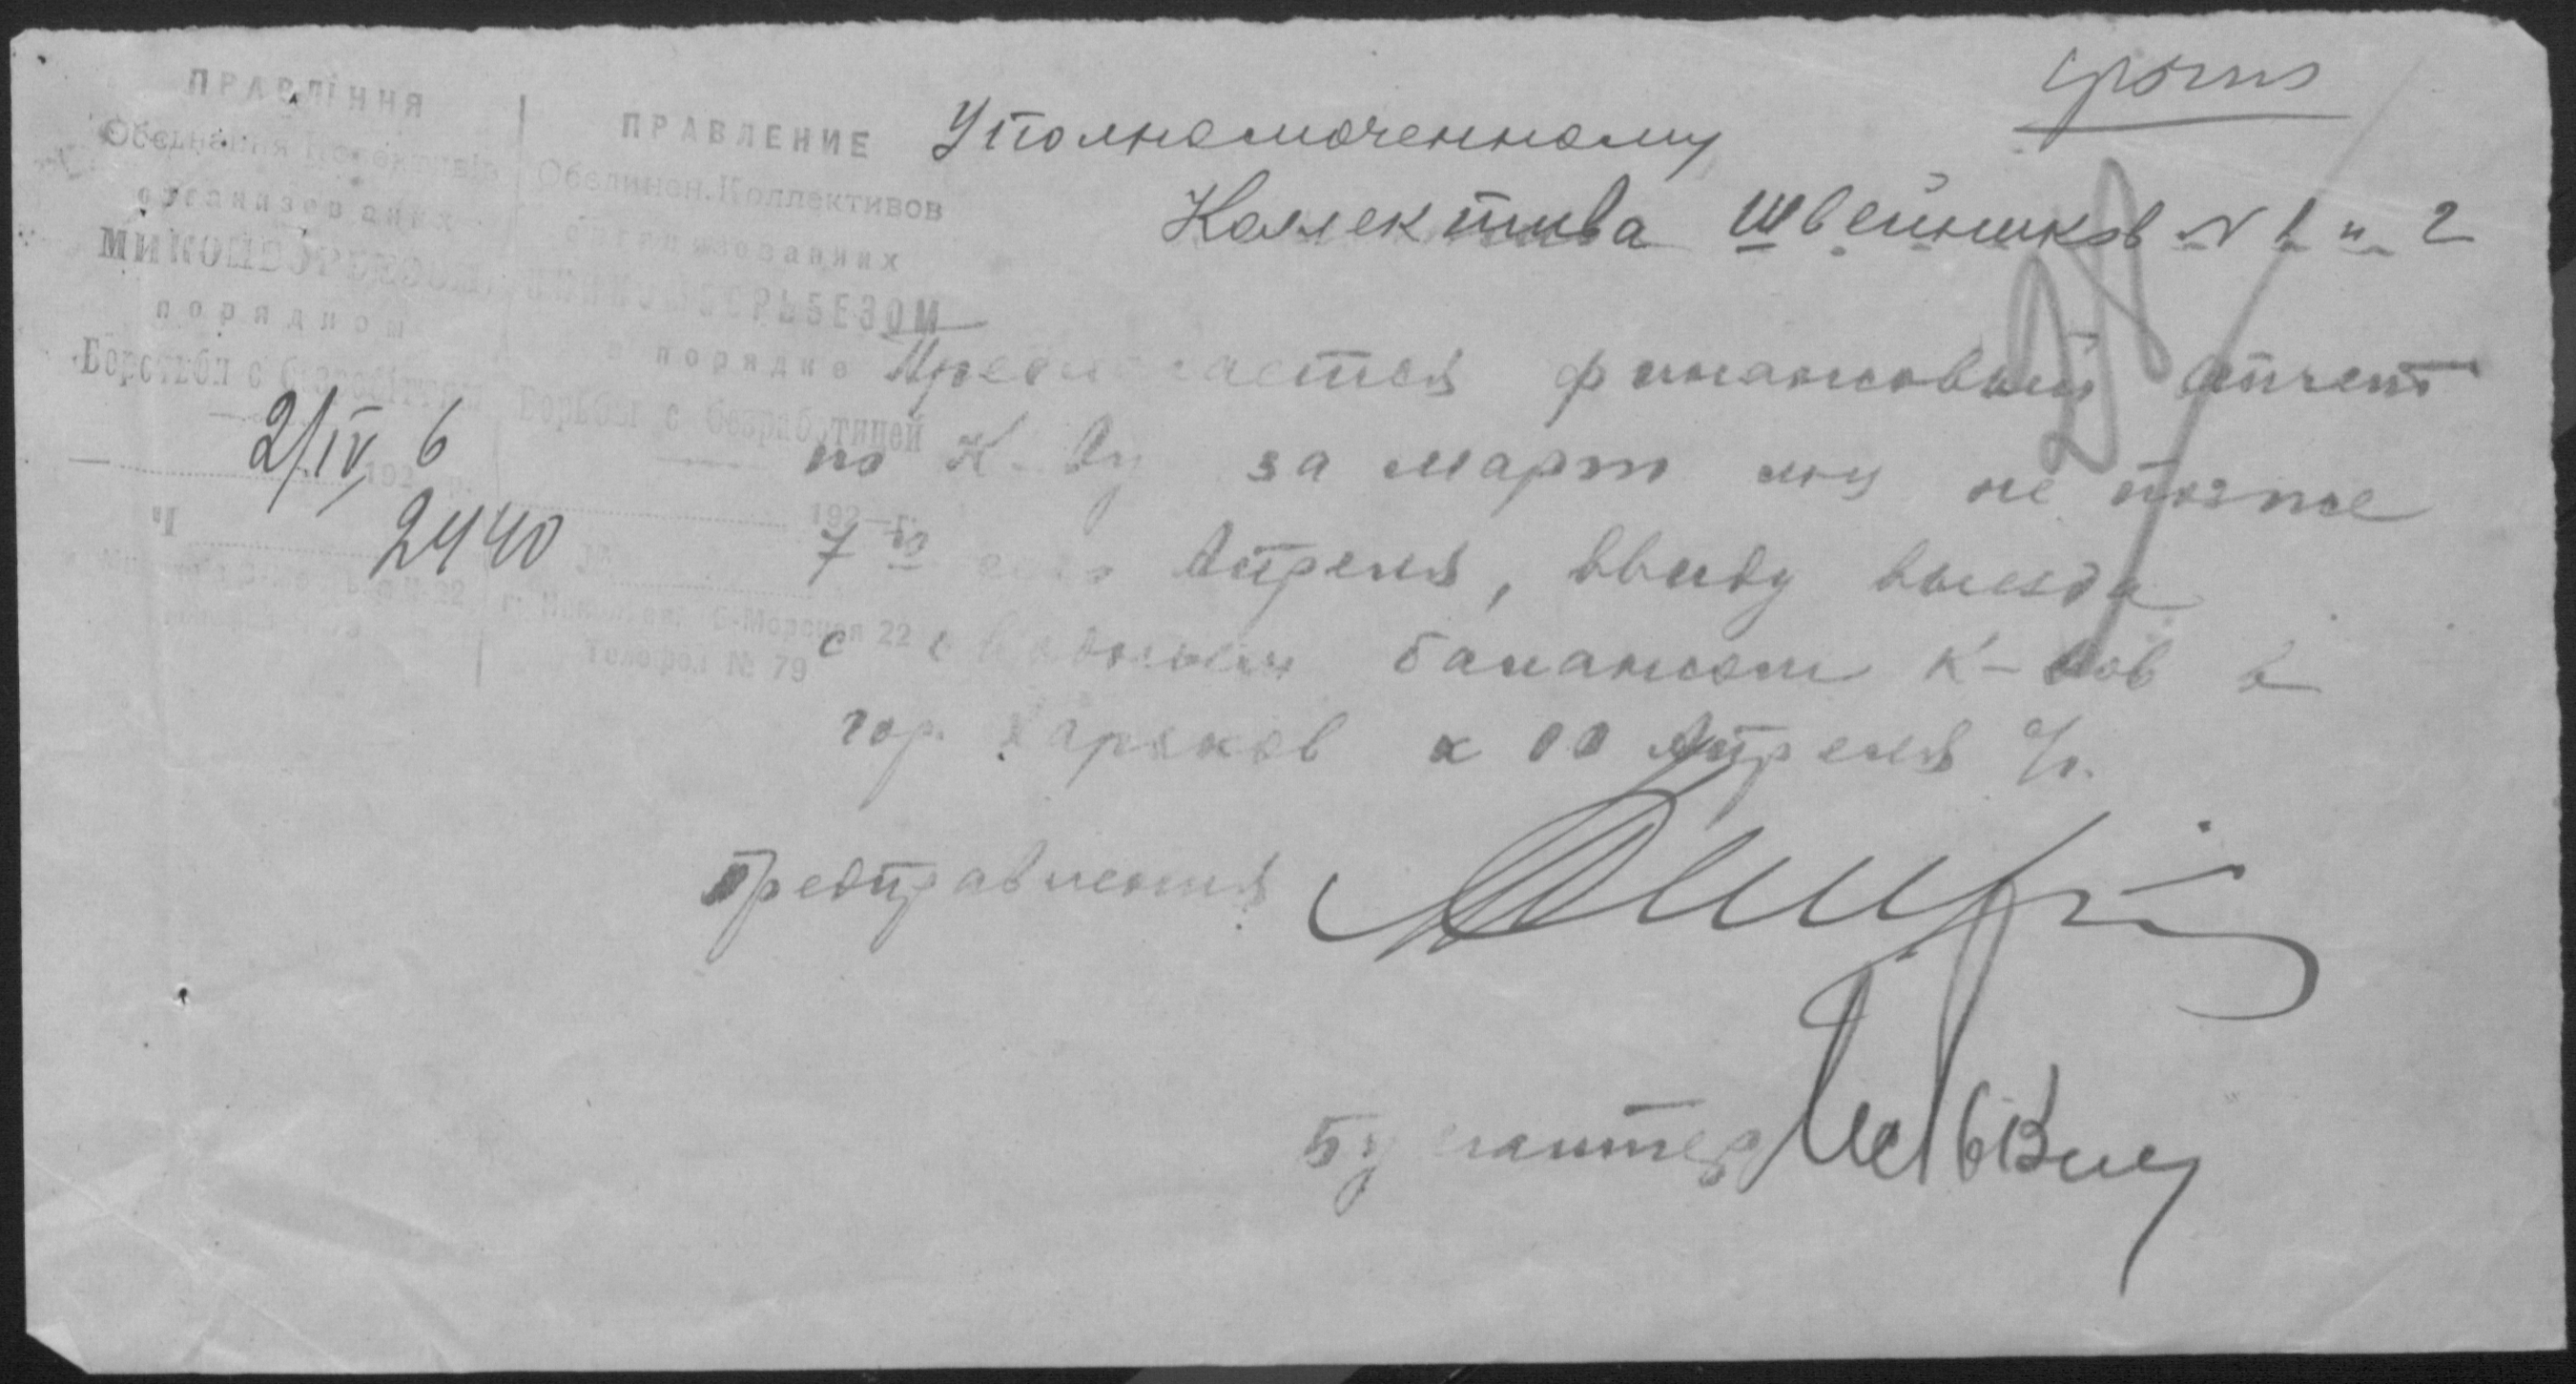 срочно
ПРАВЛІННЯ
Обєднання Колективів
организованих
МИКОПВБОРБЕЗОМ
порядком
Боротьби с безробіттям
2/IV 6
192 р.
2440
ПРАВЛЕНИЕ
Обединен. Коллективов
организованних
БОРЬБЕЗОМ
в порядке
Борьбы с безработицей
192 г.
№
г. Николаев Б-Морская 22
Телефон № 79
Уполномоченному
Коллектива Швейников N 1 и 2
Предлагается финансовый отчет
по К-ву за март м-ц не позже
7го Апреля, ввиду выезда
с сводным балансом К-вов в
гор. Харьков к 10 Апреля с/г.
Предправления
Бухгалтер